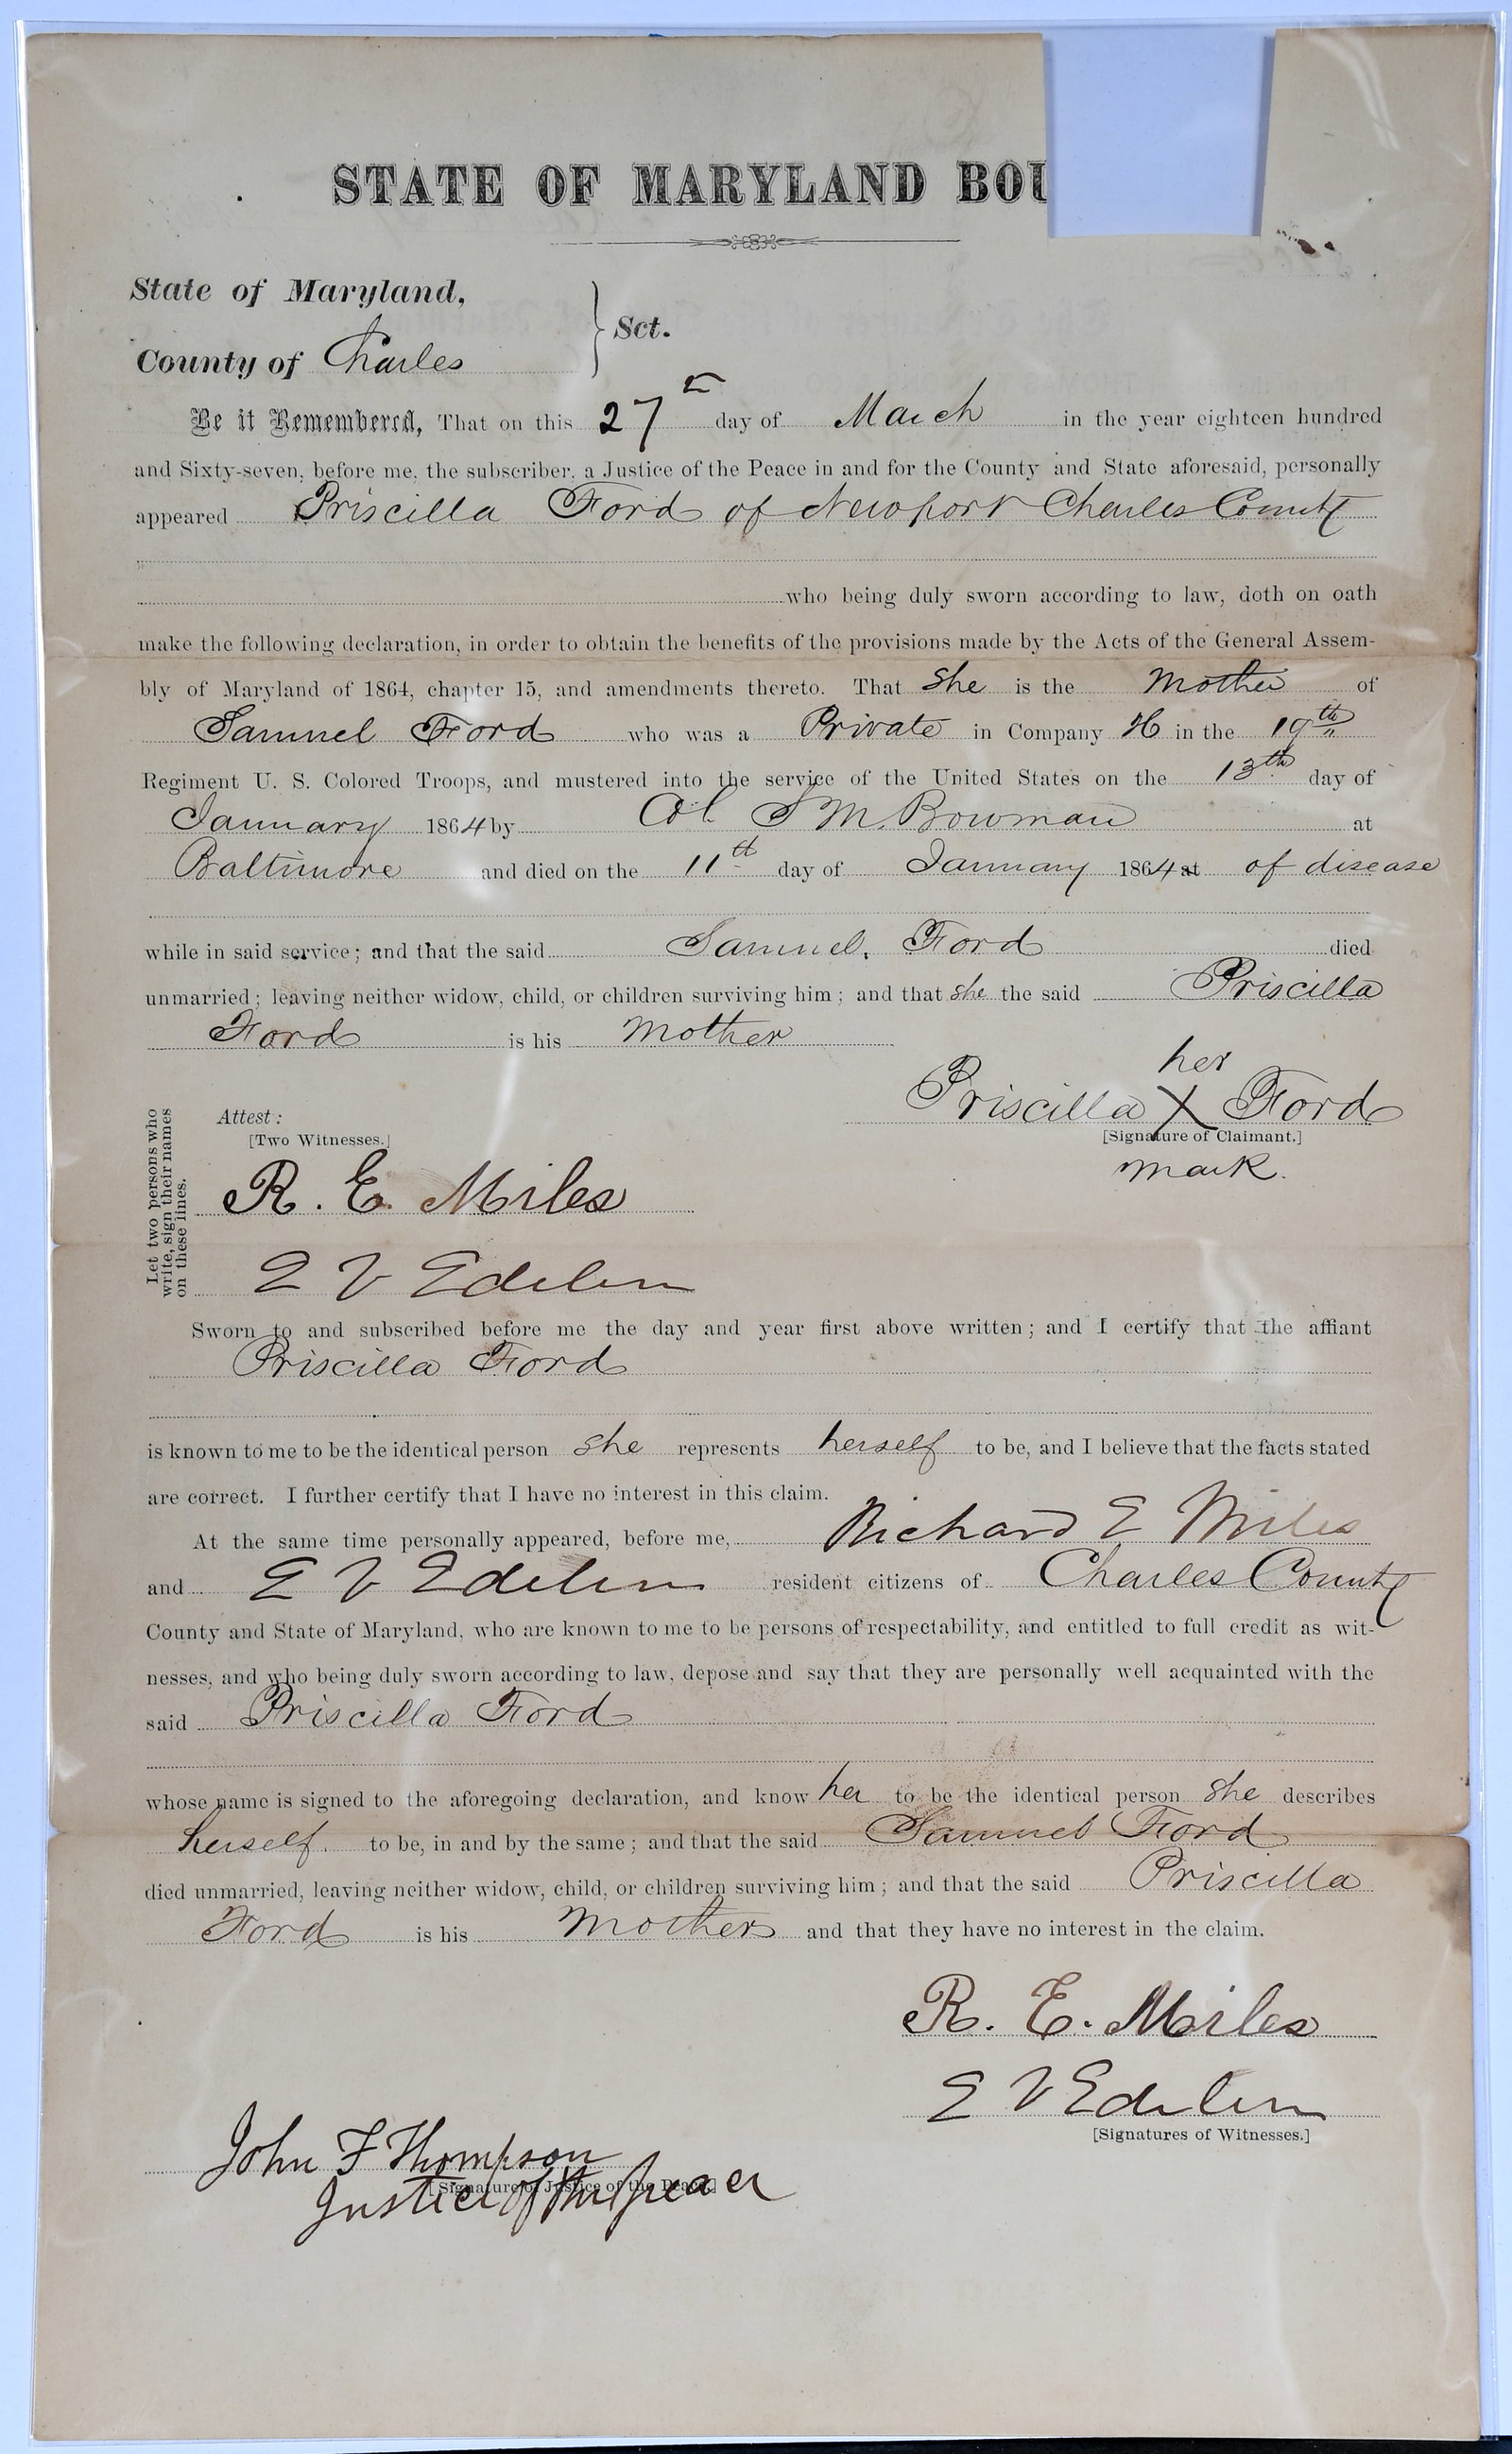 STATE OF MARYLAND BOU
State of Maryland,
County of Charles } Sct.
Be it Remembered, That on this 27th day of March in the year eighteen hundred
and Sixty-seven, before me, the subscriber, a Justice of the Peace in and for the County and State aforesaid, personally
appeared Priscilla Ford of Newport Charles County
who being duly sworn according to law, doth on oath
make the following declaration, in order to obtain the benefits of the provisions made by the Acts of the General Assem-
bly of Maryland of 1864, chapter 15, and amendments thereto. That She is the Mother of
Samuel Ford who was a Private in Company H in the 19th
Regiment U. S. Colored Troops, and mustered into the service of the United States on the 13th day of
January 1864 by Col S M. Bowman at
Baltimore and died on the 11th day of January 1864 at of disease
while in said service; and that the said Samuel. Ford died
unmarried; leaving neither widow, child, or children surviving him; and that she the said Priscilla
Ford is his Mother
her
Priscilla X Ford
[Signature of Claimant.]
mark.
Attest:
[Two Witnesses.]
Let two persons who
write, sign their names
on these lines.
R. E. Miles
E V Edelen
Sworn to and subscribed before me the day and year first above written; and I certify that the affiant
Priscilla Ford
is known to me to be the identical person she represents herself to be, and I believe that the facts stated
are correct. I further certify that I have no interest in this claim.
At the same time personally appeared, before me, Richard E Miles
and E V Edelen resident citizens of Charles County
County and State of Maryland, who are known to me to be persons of respectability, and entitled to full credit as wit-
nesses, and who being duly sworn according to law, depose and say that they are personally well acquainted with the
said Priscilla Ford
whose name is signed to the aforegoing declaration, and know her to be the identical person She describes
herself. to be, in and by the same; and that the said Samuel Ford
died unmarried, leaving neither widow, child, or children surviving him; and that the said Priscilla
Ford is his Mother and that they have no interest in the claim.
R. E. Miles
E V Edelen
[Signatures of Witnesses.]
John F Thompson
[Signature of Justice of the Peace.]
Justice of the Peace